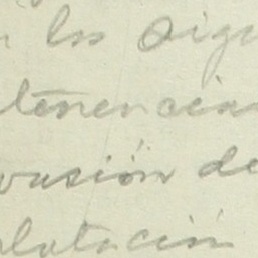 n los sigu
tenencia
vasión de
plotación